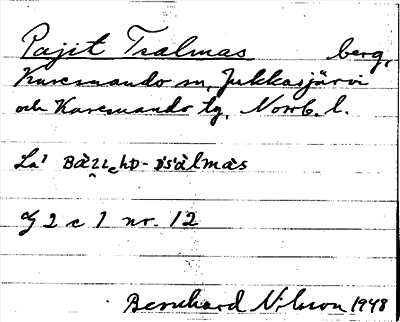 Pajit Tsalmas berg,
Karesuando sn, Jukkasjärvi
och Karesuando tg, Norrb. l.
La'
Y 2 c 1 nr. 12
Bernhard Nilsson 1948